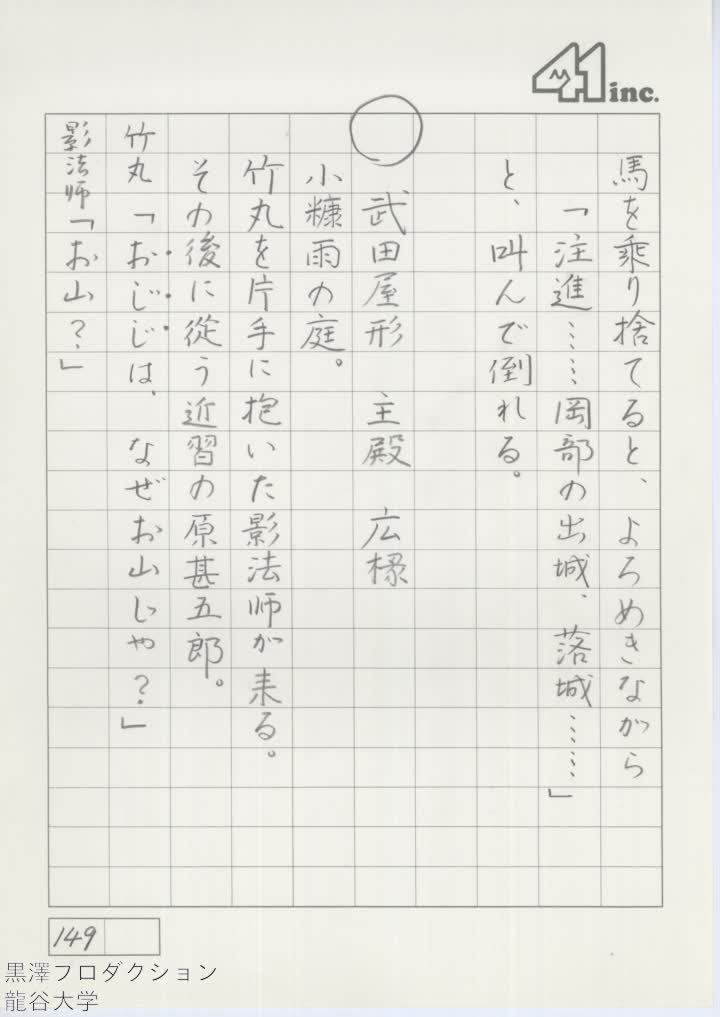 41 inc.
馬を乗り捨てると、よろめきながら
「注進……岡部の出城、落城……」
と、叫んで倒れる。
武田屋形　主殿　広椽
小糠雨の庭。
竹丸を片手に抱いた影法師が来る。
その後に従う近習の原甚五郎。
竹丸「おじじは、なぜお山じゃ？」
影法師「お山？」
149
黒澤フロダクション
龍谷大学